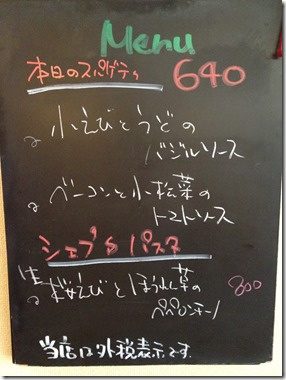 Menu
本日のスパゲティ 640
小えびとうどの
バジルソース
ベーコンと小松菜の
トマトソース
シェフ's パスタ
生桜えびとほうれん菜の 800
ペペロンチーノ
当店は外税表示です。